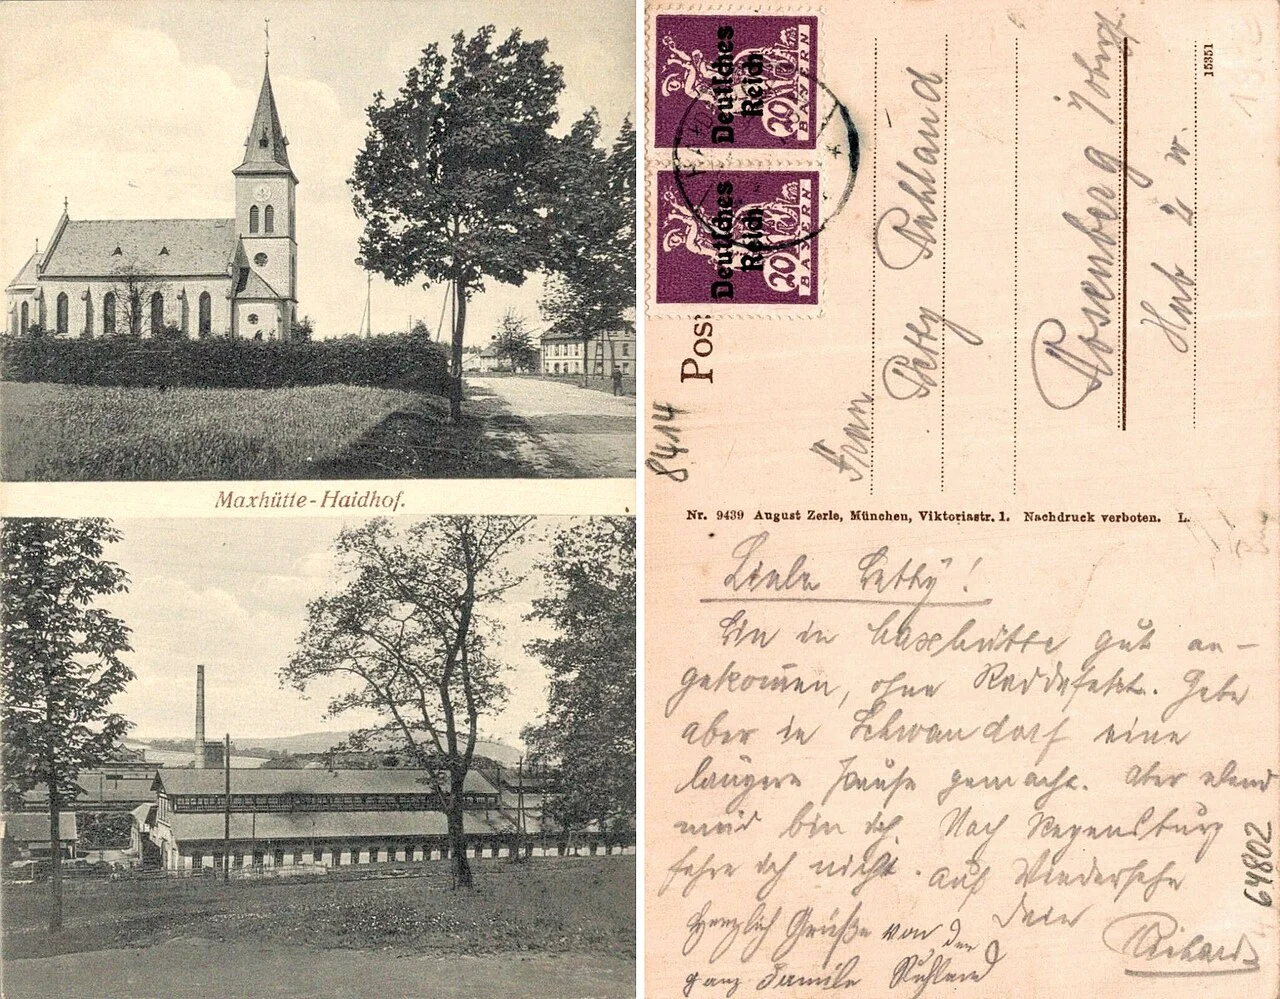 Maxhütte-Haidhof.
Deutsches
Reich
20
BAYERN
Deutsches
Reich
20
BAYERN
Pos
Frau
Betty Ruhland
Rosenberg
Hs Nr 2
15351
8414
Nr. 9439 August Zerle, München, Viktoriastr. 1. Nachdruck verboten. L.
Liebe Betty!
Bin in Maxhütte gut an-
gekommen, ohne Raddefekt. Habe
aber in Schwandorf eine
längere Pause gemacht. Aber elend
müd bin ich. Nach Regensburg
fahre ich nicht. Auf Wiedersehn
Dein
Richard
Herzlich Grüße von der
ganz Familie Ruhland
64802